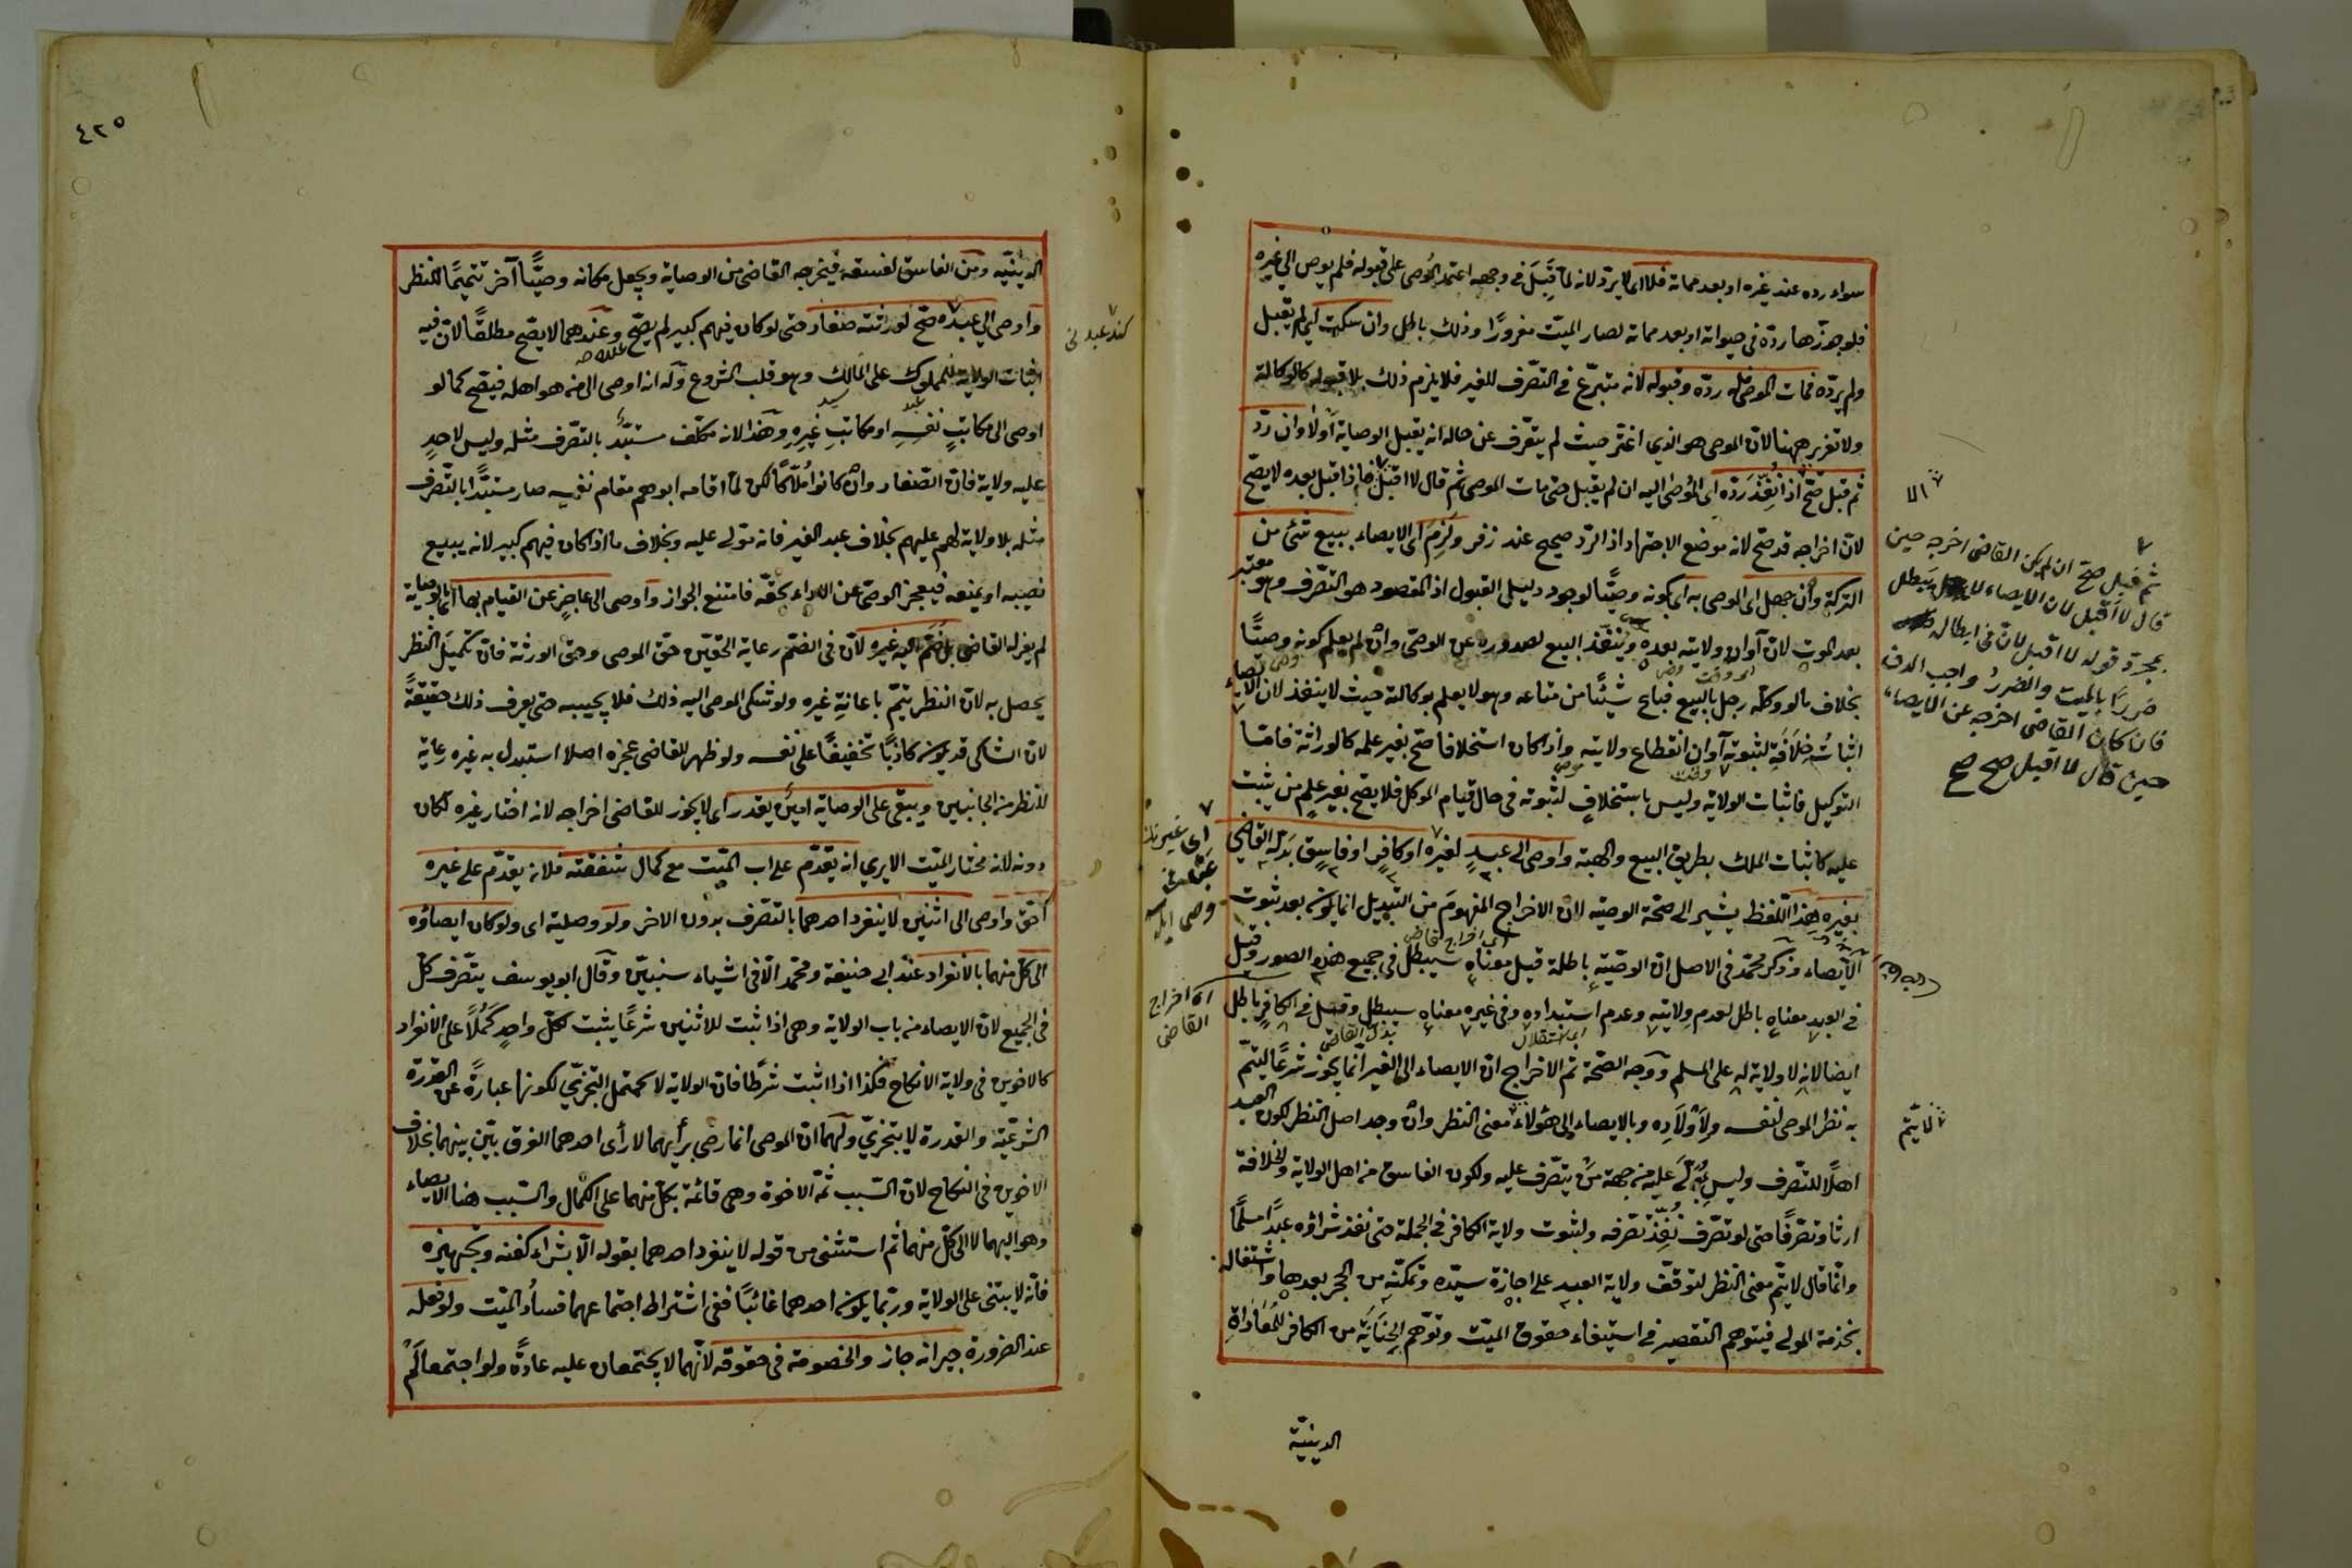 سواء رده عند غيره او بعد مماته فلا اى لا يردّ لانه لمّا قَبِلَ فى وجهه اعتمد المُوصى على قبوله فلم يوص الى غيره
فلو جوّزها ردّه فى حيواته او بعد مماته لصار الميّت مغرورًا وذلك باطل وان سكت اى لم يقبل
ولم يردّه فمات الموصى فله ردّه وقبوله لانه متبرّع فى التصّرف للغير فلا يلزم ذلك بلا قبوله كالوكالة
ولا تغرير ههنا لانّ الموصى هو الذى اغترّ حيث لم يتعّرف عن حاله انه يقبل الوصاية اولًا وان ردّ
ثم قبل صحّ اذا نُفِّذَ ردّه اى المُوصٰى اليه ان لم يقبل حتى مات الموصى ثم قال لا اقبل فاذا قبل بعده لا يصّح
لانّ اخراجه قد صّح لانه موضع الاجتهاد اذ الردّ صحيح عند زفر ولَزِمَ اى الايصاء ببيع شئ من
التركة وأن جهل اى الموصى به اى بكونه وصيًّا لوجود دليل القبول اذ المقصود هو التصّرف وهو معتبر
بعد الموت لانّ آوان ولايته بعده وينفّذ البيع لصدوره عن الوصىّ وان لم يعلم كونه وصيًّا
بخلاف ما لو وكلّه رجل بالبيع فباع شيئًا من متاعه وهو لا يعلم بوكالته حيث لا ينفذ لان الايصاء
اثباتُ خِلَافَةٍ لثبوته آوان انقطاع ولايته واذا كان استخلافا صّح بغير علمه كالوراثة فامّا
التوكيل فاثبات الولاية وليس باستخلافٍ لثبوته فى حال قيام الموكل فلا يصّح بغير علمٍ من يثبت
عليه كاثبات الملك بطريق البيع والهبة واوصى الى عبدٍ لغيره او كافرٍ او فاسقٍ بَدّله القاضى
بغيره هذا اللّفظ يشير الى صّحة الوصّية لانّ الاخراج المفهومَ من التبديل انما يكون بعد ثبوت
الايصاء وذكر محمّد فى الاصل انّ الوصّيةِ باطلة قيل معناه سيبطل فى جميع هذه الصور وقيل
فى العبد معناه باطل لعدم ولايته وعدم استبداده وفى غيره معناه سيبطل وقيل فى الكافر باطل
ايضا لانه لا ولاية له على المسلم ووجه الصّحة ثم الاخراج انّ الايصاء الى الغير انّما يجوز شرعًا ليتمّ
به نظر الموصى لنفسه ولِأولَادِه وبالايصاء الى هؤلاء معنى النظر وان وجد اصل النظر لكون العبد
اهلًا للتصّرف وليس عليه من جهة مَنْ يتصّرف عليه ولكون الفاسق من اهل الولاية والخلافة
ارثا وتصرّفًا حتى لو تصّرف نُفِّذ تصّرفه ولثبوت ولاية الكافر فى الجملة حتى نفذ شراؤه عبدًا مسلمًا
وانّما قال لا يتمّ معنى النظر لتوقّف ولاية العبد على اجازة سيّده وتمكّنه من الحجر بعدها واشتغاله
بخدمة المولى فيتوهم التقصير فى استيفاء حقوق الميّت وتوّهم الخِيَانَةِ من الكافر للمُعَادَاةِ
الدينيّة
الا
ثم قبل صحّ ان لم يكن القاضى اخرجه حين
قال لا اقبل لان الايصاء لا يبطل
بمجرّد قوله لا اقبل لانّ فى ابطاله
ضررًا بالميت والضررُ واجب الدفع
فان كان القاضى اخرجه عن الايصاء
حين قال لا اقبل صح صح
لا يتّم
اى اخراج
القاضى
اى اخراج القاضى
اى استقلال
٤٢٥
الدينيّه ومن الفاسق لفسقه فيخرجه القاضى من الوصاية ويجعل مكانه وصيًّا آخر تتميمًا للنظر
واوصى الى عبده صحّ لو ورثته صغار حتى لو كان فيهم كبير لم يصّح وعندهما لا يصّح مطلقًا لانّ فيه
اثبات الولاية للمملوك على المالك وهو قلب المشروع وله انه اوصى الى من هو اهله فيصّح كما لو
اوصى الى مكاتبِ نفسِهِ او مكاتبِ غيرِهِ وهذا لانه مكلّف مستبّدٌ بالتصّرف مثله وليس لاحدٍ
عليه ولاية فانّ الصّغار وان كانوا مُلّاكًا لكن لمّا اقامه ابوهم مقام نفسه صار مستبدًّا بالتصّرف
مثله بلا ولاية لهم عليهم بخلاف عبد الغير فانه مولى عليه وبخلاف ما اذا كان فيهم كبير لانه يبيع
نصيبه او يمنعه فيعجز الوصىّ عن الاداء بحقّه فامتنع الجواز واوصى الى عاجزٍ عن القيام بها اى بالوصاية
لم يعزله القاضى بل ضَمّ اليه غيره لانّ فى الضّم رعاية الحقّين حقّ الموصى وحقّ الورثة فانّ تكميلَ النظر
يحصل به لانّ النظر يتمّ باعانةِ غيره ولو شكى الموصى اليه ذلك فلا يجيبه حتى يعرف ذلك حقيقةً
لانّ الشاكى قد يكون كاذبًا تخفيفًا على نفسه ولو ظهر للقاضى عجزه اصلا استبدل به غيره رعايةً
للنظر من الجانبين ويبقى على الوصاية امينٌ يقدر اى لا يجوز للقاضى اخراجه لانه اختار غيره لكان
دونه لانه مختار الميّت الا يرى انه يقدّم على اب الميّت مع كمال شفقته فلان يقدّم على غيره
احقّ واوصى الى اثنين لا ينفرد احدهما بالتصّرف بدون الاخر ولو وصلية اى ولو كان ايصاؤه
الى كلّ منهما بالانفراد عند ابى حنيفة ومحّمد الّا فى اشياء سنبيّن وقال ابو يوسف يتصّرف كلّ
فى الجميع لانّ الايصاء من باب الولاية وهى اذا ثبت للاثنين شرعًا يثبت لكلّ واحدٍ كَمَلًا على الانفراد
كالاخوين فى ولاية الانكاح فكذا اذا اثبت شرطًا فانّ الولاية لا تحتمل التجزّى لكونها عبارةً عن القدرة
الشرعيّة والقدرة لا يتجزىّ ولهما انّ الموصى انما رضى برأيهما لا رأى احدهما الفرق بيّن بينهما بخلاف
الاخوين فى النكاح لانّ السّبب ثمّه الاخوة وهى قائمة بكلّ منهما على الكمال والسّبب هنا الايصاء
وهو اليهما لا الى كلّ منهما ثم استثنى من قوله لا ينفرد احدهما بقوله الّا بشراء كفنه وتجهيزه
فانّه لا يبتنى على الولاية وربّما يكون احدهما غائبًا ففى اشتراط اجتماعهما فساد الميّت ولو فعله
عند الضرورة جيرانه جاز والخصومة فى حقوقه لانّهما لا يجتمعان عليه عادةً ولو اجتمعا لَمْ